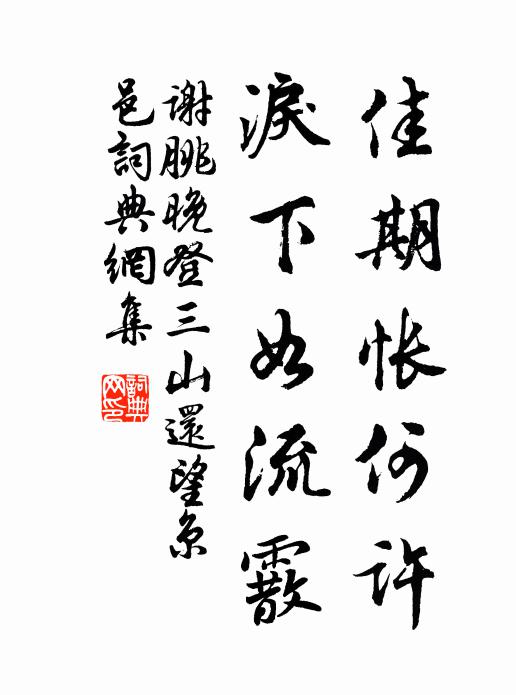 佳期悵何許
淚下如流霰
謝朓晚登三山還望京
邑詞典網集
詞典網印